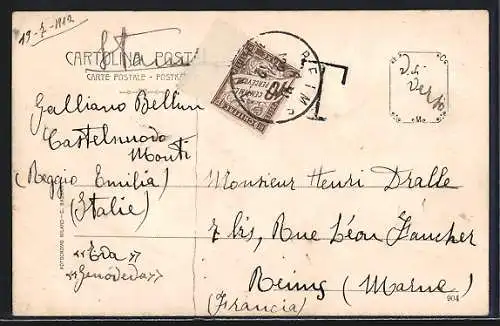 19-7-1912
Stam
CARTOLINA POSTALE
CARTE POSTALE - POSTKA
REIMS
T
Vdi
Verso
CENTIMES
À PERCEVOIR
10
Galliano Bellini
Castelnuovo
Monti
(Reggio Emilia)
(Italie)
«Eda»
«Genoveda»
Monsieur Henri Dralle
7 bis, Rue Léon Faucher
Reims (Marne)
(Francia)
904